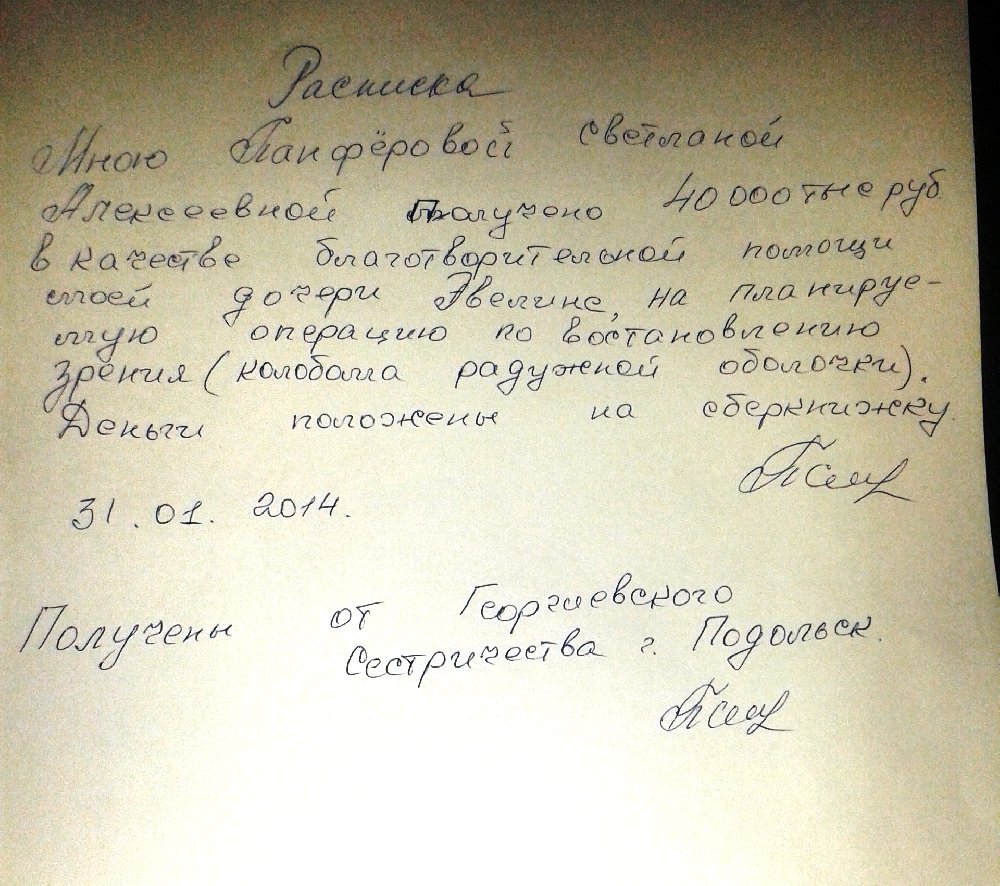 Расписка
Мною Панфёровой Светланой
Алексеевной получено 40 000 тыс руб.
в качестве благотворительной помощи
моей дочери Эвелине, на планируе-
мую операцию по востановлению
зрения (колобома радужной оболочки).
Деньги положены на сберкнижку.
31.01. 2014.
Получены от Георгиевского
Сестричества г. Подольск.